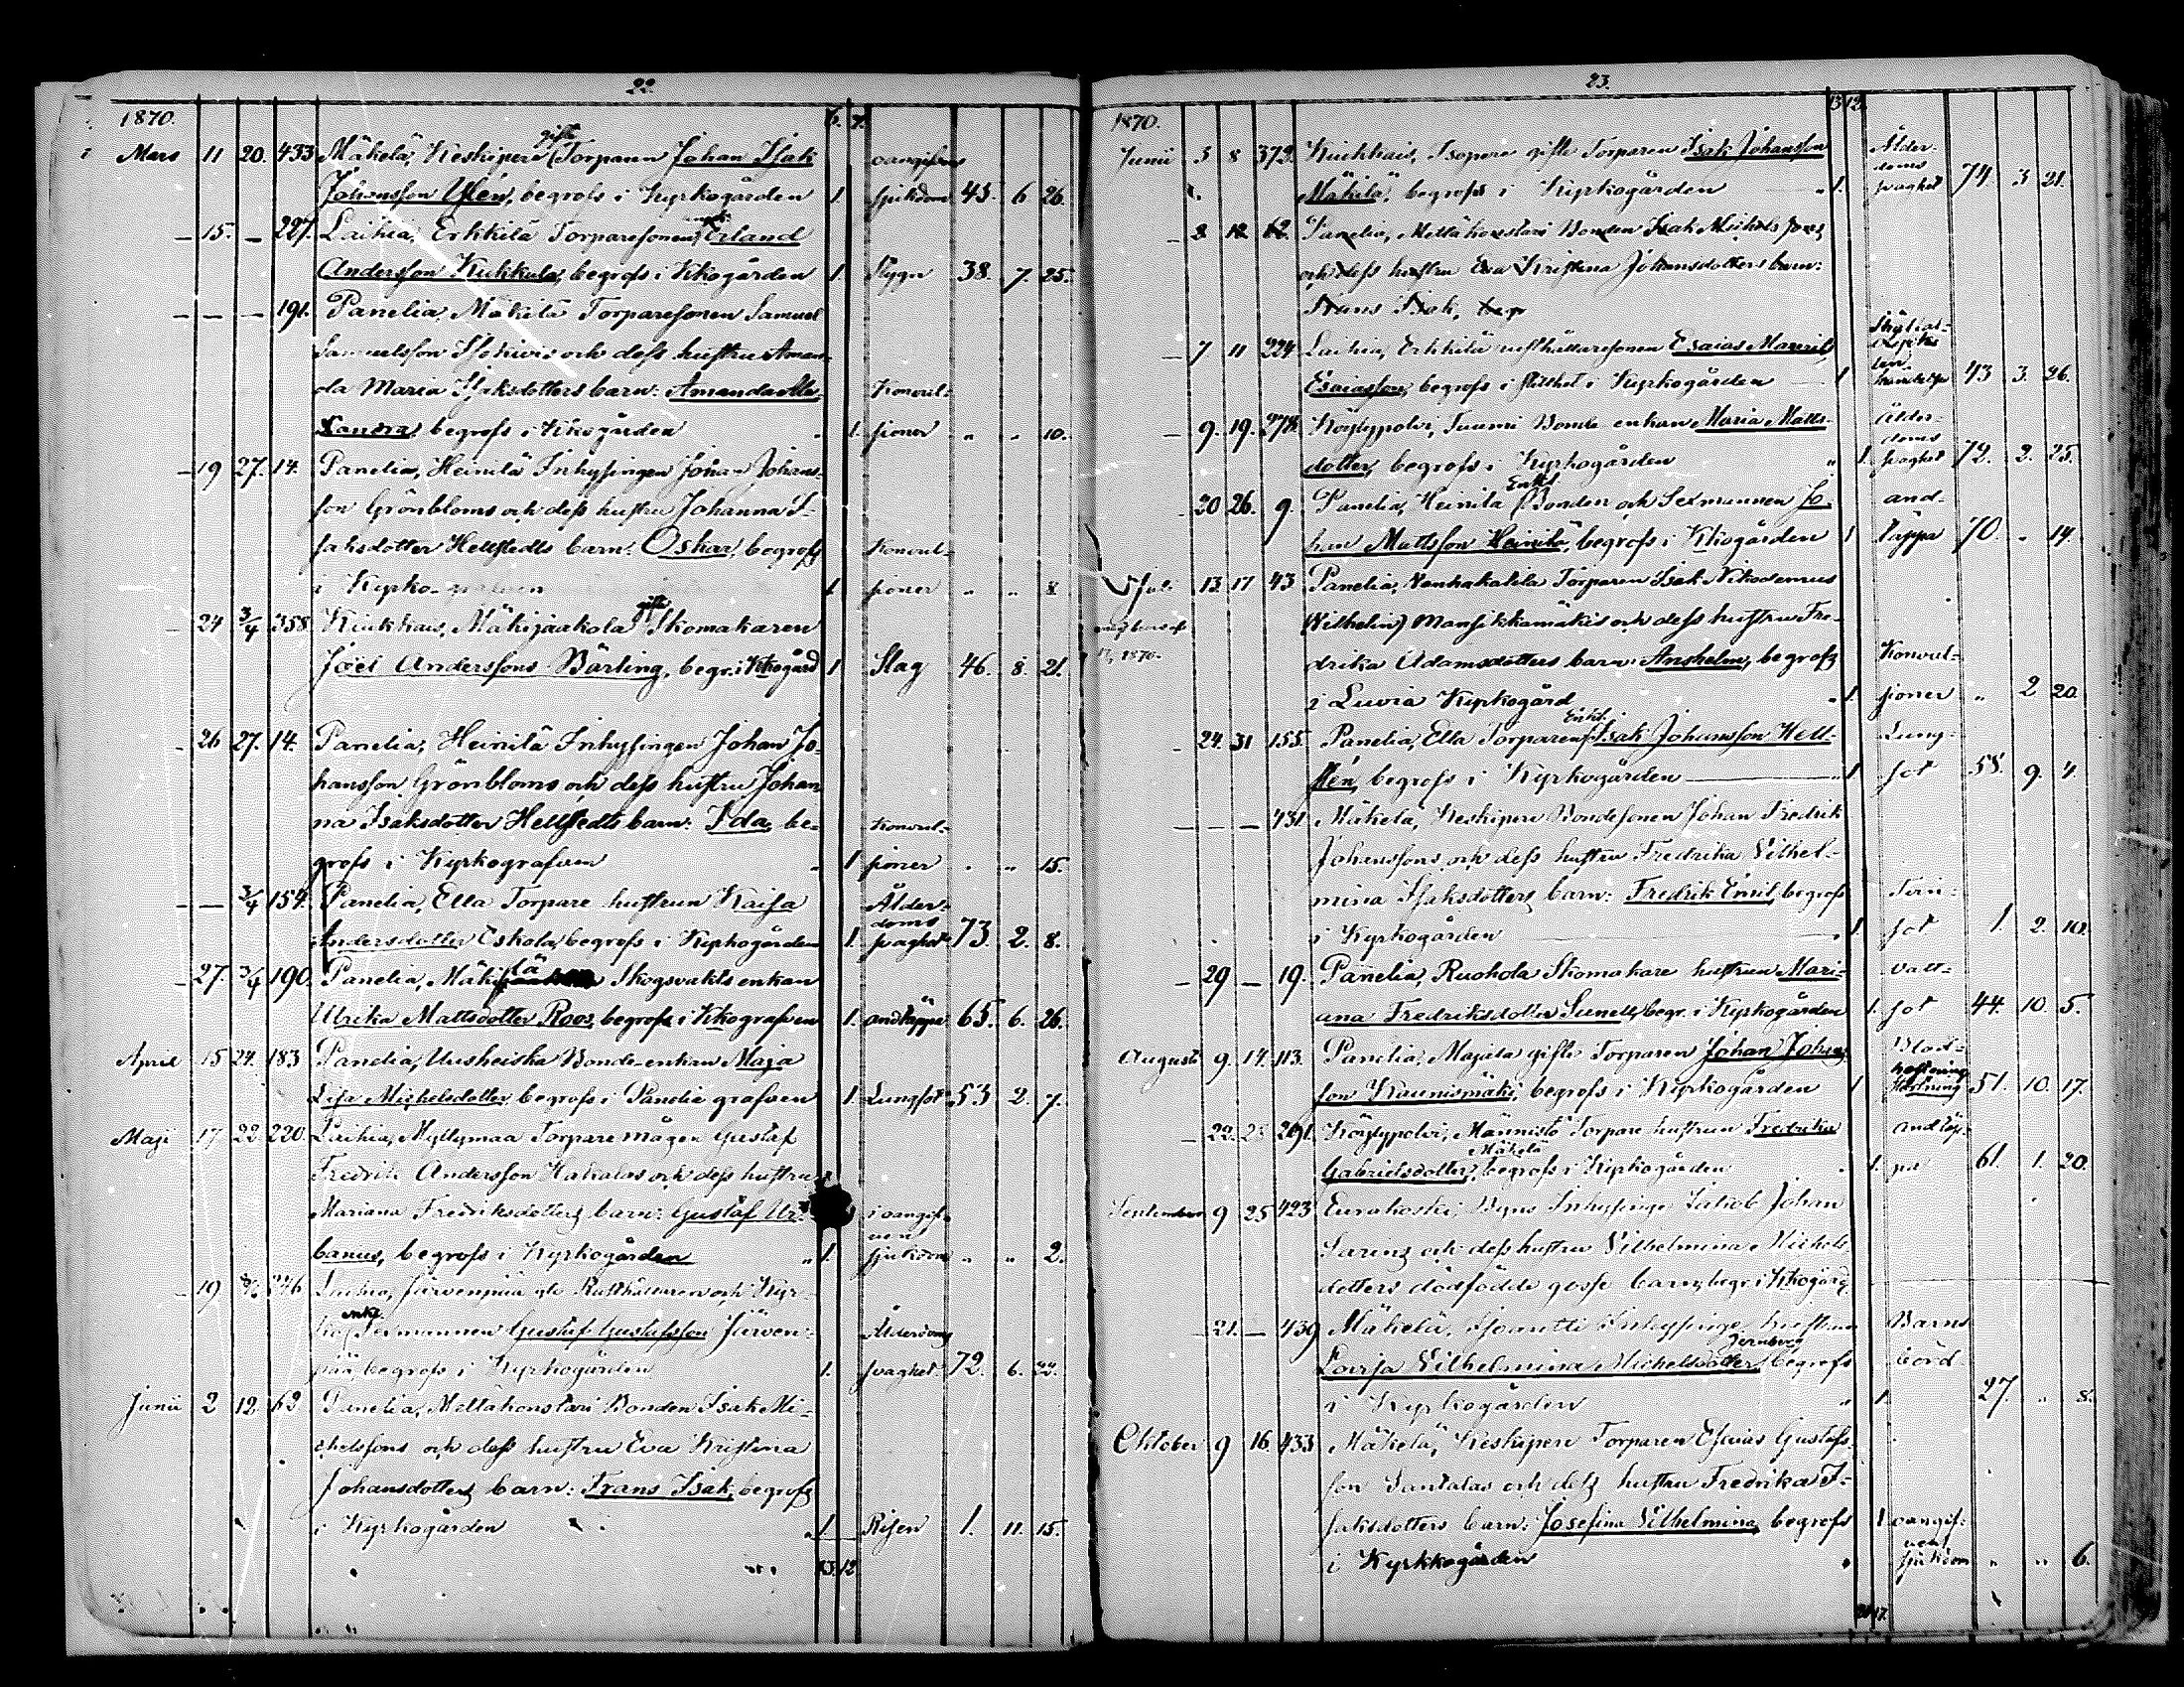 22.
1870. 6. 7.
Mars 11 20. 433 Mäkelä, Keskipere gift Torparen Johan Isak oangifven
Johansson Ylén, begrofs i Kyrkogården 1. sjukdom 43. 6 26.
— 15. — 227. Laihia, Erkkilä Torparesonen Erland
Andersson Kukkula, begrofs i Kkogården 1. Flygn 38. 7. 25.
— — — 191. Panelia, Mäkilä Torparesonen Samuel
Samuelsson Isokivis och dess hustru Aman-
da Maria Isaksdotters barn: Amanda Ale- Konvul-
xandra, begrofs i Kkogården " 1. sioner " " 10.
— 19 27. 14. Panelia, Heinilä Inhysingen Johan Johans-
son Grönbloms och dess hustru Johanna I-
saksdotter Hellstedts barn: Oskar, begrofs Konvul-
i Kyrko- 1 sioner " " 8
— 24 3/4 358. Kiukkais, Mäkijaakola gift Skomakaren
Joel Anderssons Bärling, begr. i Kkogård 1 Slag 46. 8. 21.
— 26 27. 14. Panelia, Heinilä Inhysingen Johan Jo-
hansson Grönbloms och dess hustru Johan
na Isaksdotter Hellstedts barn: Ida, be- Konvul-
grofs i Kyrkografven " 1 sioner " " 15.
— — 3/4 154. Panelia, Ella Torpare hustrun Kaisa Ålder-
Andersdotter Eskola, begrofs i Kyrkogården 1. doms svaghet 73. 2. 8.
— 27. 3/4 190. Panelia, Mäkilä Skogsvakts enkan
Ulrika Mattsdotter Roos, begrofs i Kkografven 1. andtäppa 65. 6. 26.
April 15 24. 183 Panelia, Uusheiska Bonde-enkan Maja
Lisa Michelsdotter, begrofs i Panelia grafven 1. Lungsot 53 2. 7.
Maji 17 22 220. Laihia, Myllymaa Torpare mågen Gustaf
Fredrik Andersson Hakalas och dess hustru
Mariana Fredriksdotters barn: Gustaf Ur- oangif-
banus, begrofs i Kyrkogården " 1. ven sjukdom " " 2.
— 19 246 Laihia, Järvenpää gle Rusthållaren och Kyr-
enkl. Sexmannen Gustaf Gustafsson Järven- Ålderdoms
pää, begrofs i Kyrkogården 1. svaghet 72. 6. 22.
Junii 2 12. 62 Panelia, Mellåkonstari Bonden Isak Mi-
chelssons och dess hustru Eva Kristina
Johansdotters barn: Frans Isak, begrofs
i Kyrkogården " 1 Risen 1. 11. 15.
13. 12
23.
1870. 13 12.
Junii 3 8 379. Kiukkais, Isopere gifte Torparen Isak Johansson Ålder-
Mäkilä, begrofs i Kyrkogården " 1. doms svaghet 74. 3 21.
— 2 12 62. Panelia, Mellåkonstari Bonden Isak Michelssons
och dess hustru Eva Kristina Johansdotters barn:
Frans Isak, begr
— 7 11 224 Laihia, Erkkilä rusthållaresonen Esaias Mauriz
Esaiasson, begrofs i stillhet i Kyrkogården — 1 händelse 43 3. 26.
— 9. 19. 278. Köylypolvi, Tuomi Bonde enkan Maria Matts- Ålder-
dotter, begrofs i Kyrkogården " 1. doms svaghet 72. 2. 25.
— 20 26. 9. Panelia, Heinilä Enkl. Bonden och Sexmannen Jo- and-
han Mattsson Heinilä, begrofs i Kkogården 1 täppa 70. " 14.
Juli 13 17 43 Panelia, Vanhakalila Torparen Isak Nikodemus
(Vilhelin) Mansikkamäkis och dess hustru Fre-
1870. drika Adamsdotters barn: Anshelm, begrofs Konvul-
i Luvia Kyrkogård " 1. sioner " 2 20.
— 24. 31 155. Panelia, Ella Torparen Enkl. Isak Johansson Hell- Lung-
stén, begrofs i Kyrkogården — " 1 sot 58. 9. 4.
— — — 431 Mäkelä, Keskipere Bondesonen Johan Fredrik
Johanssons och dess hustru Fredrika Vilhel-
mina Isaksdotters barn: Fredrik Emil, begrofs Tvin-
i Kyrkogården 1. sot 1. 2. 10.
— 29 — 19. Panelia, Ruohola Skomakare hustrun Mari- Vatt-
ana Fredriksdotter Sunell, begr. i Kyrkogården 1. sot 44. 10. 5.
August 9. 14. 113. Panelia, Majala gifte Torparen Johan Johans- Blod-
son Kaunismäki, begrofs i Kyrkogården 1 51. 10. 17.
— 22. 25 291. Köylypolvi, Männistö Torpare hustrun Fredrika andtäp-
Gabrielsdotter Mäkelä, begrofs i Kyrkogården " 1. pa 61. 1. 20.
September 9 25 423 Eurakoski, Byns Inhysinge Jakob Johan
Sarins och dess hustru Vilhelmina Michels-
dotters dödfödde gosse barn, begr. i Kkogård
— 21. — 439 Mäkelä, Isoantti Inhysinge hustrun Barns
Lovisa Vilhelmina Michelsdotter Jernberg, begrofs börd
i Kyrkogården " 1. 27. " 8.
Oktober 9 16 433 Mäkelä, Keskipere Torparen Esaias Gustafs-
son Santalas och dess hustru Fredrika I-
saksdotters barn: Josefina Vilhelmina, begrofs 1 oangif-
i Kyrkkogården " ven sjukdom " " 6.
17.